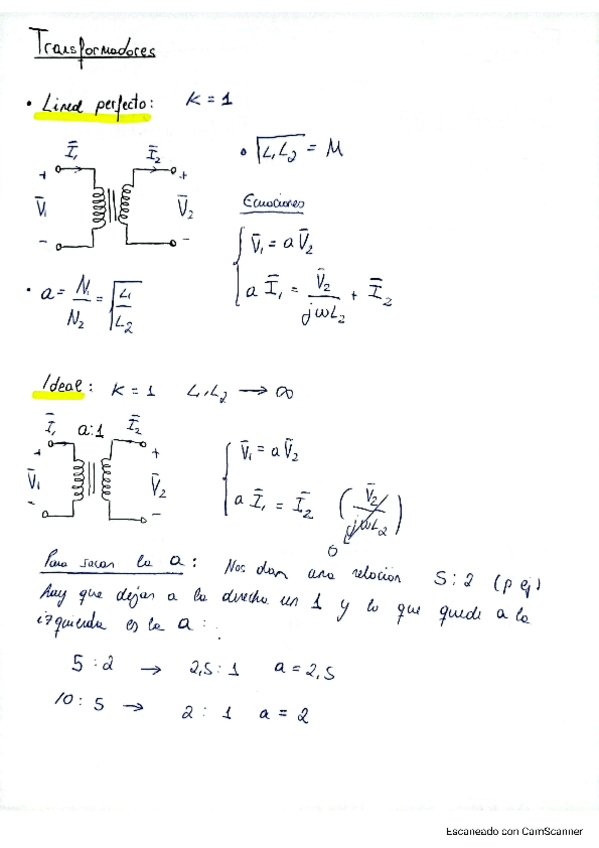 Transformadores
• Lineal perfecto: K = 1
Ī₁ Ī₂
+ +
V̄₁ V̄₂
- -
• √L₁L₂ = M
Ecuaciones
V̄₁ = a V̄₂
a Ī₁ = V̄₂/jωL₂ + Ī₂
• a = N₁/N₂ = √L₁/L₂
Ideal: K = 1 L₁, L₂ → ∞
Ī₁ a:1 Ī₂
+ +
V̄₁ V̄₂
- -
V̄₁ = a V̄₂
a Ī₁ = Ī₂ (V̄₂/jωL₂)
0
Para sacar la a: Nos dan una relacion 5:2 (p ej)
hay que dejar a la derecha un 1 y lo que quede a la
izquierda es la a:
5:2 → 2,5:1 a = 2,5
10:5 → 2:1 a = 2
Escaneado con CamScanner